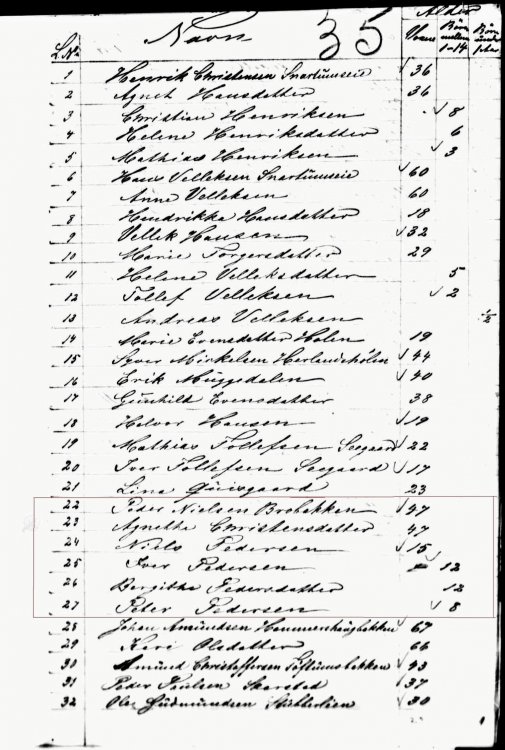 35
Alder
L.No Navn Voxne Børn mellem 1-14 Børn under 1 aar
1 Henrik Christensen 36
2 Agnet Hansdatter 36
3 Christian Henriksen 8
4 Helene Henriksdatter 6
5 Mathias Henriksen 3
6 Hans Velleksen 60
7 Anne Velleksen 60
8 Hendrikke Hansdatter 18
9 Vellek Hansen 32
10 Marie Torgersdatter 29
11 Helene Velleksdatter 5
12 Tollef Velleksen 2
13 Andreas Velleksen 1/2
14 Marie Evensdatter Holen 19
15 Syver Mickelsen 44
16 Erik 40
17 Gunhild Evensdatter 38
18 Halvor Hansen 19
19 Mathias Tollefsen Seegaard 22
20 Iver Tollefsen Seegaard 17
21 Lina 23
22 Peder Nielsen Brobakken 47
23 Agnethe Christensdatter 47
24 Niels Pedersen 15
25 Iver Pedersen 12
26 Bergithe Pedersdatter 12
27 Peter Pedersen 8
28 Johan Amundsen 67
29 Kari Olsdatter 66
30 Amund Christoffersen 43
31 Peder Paulsen 37
32 Ole Gudmundsen 30